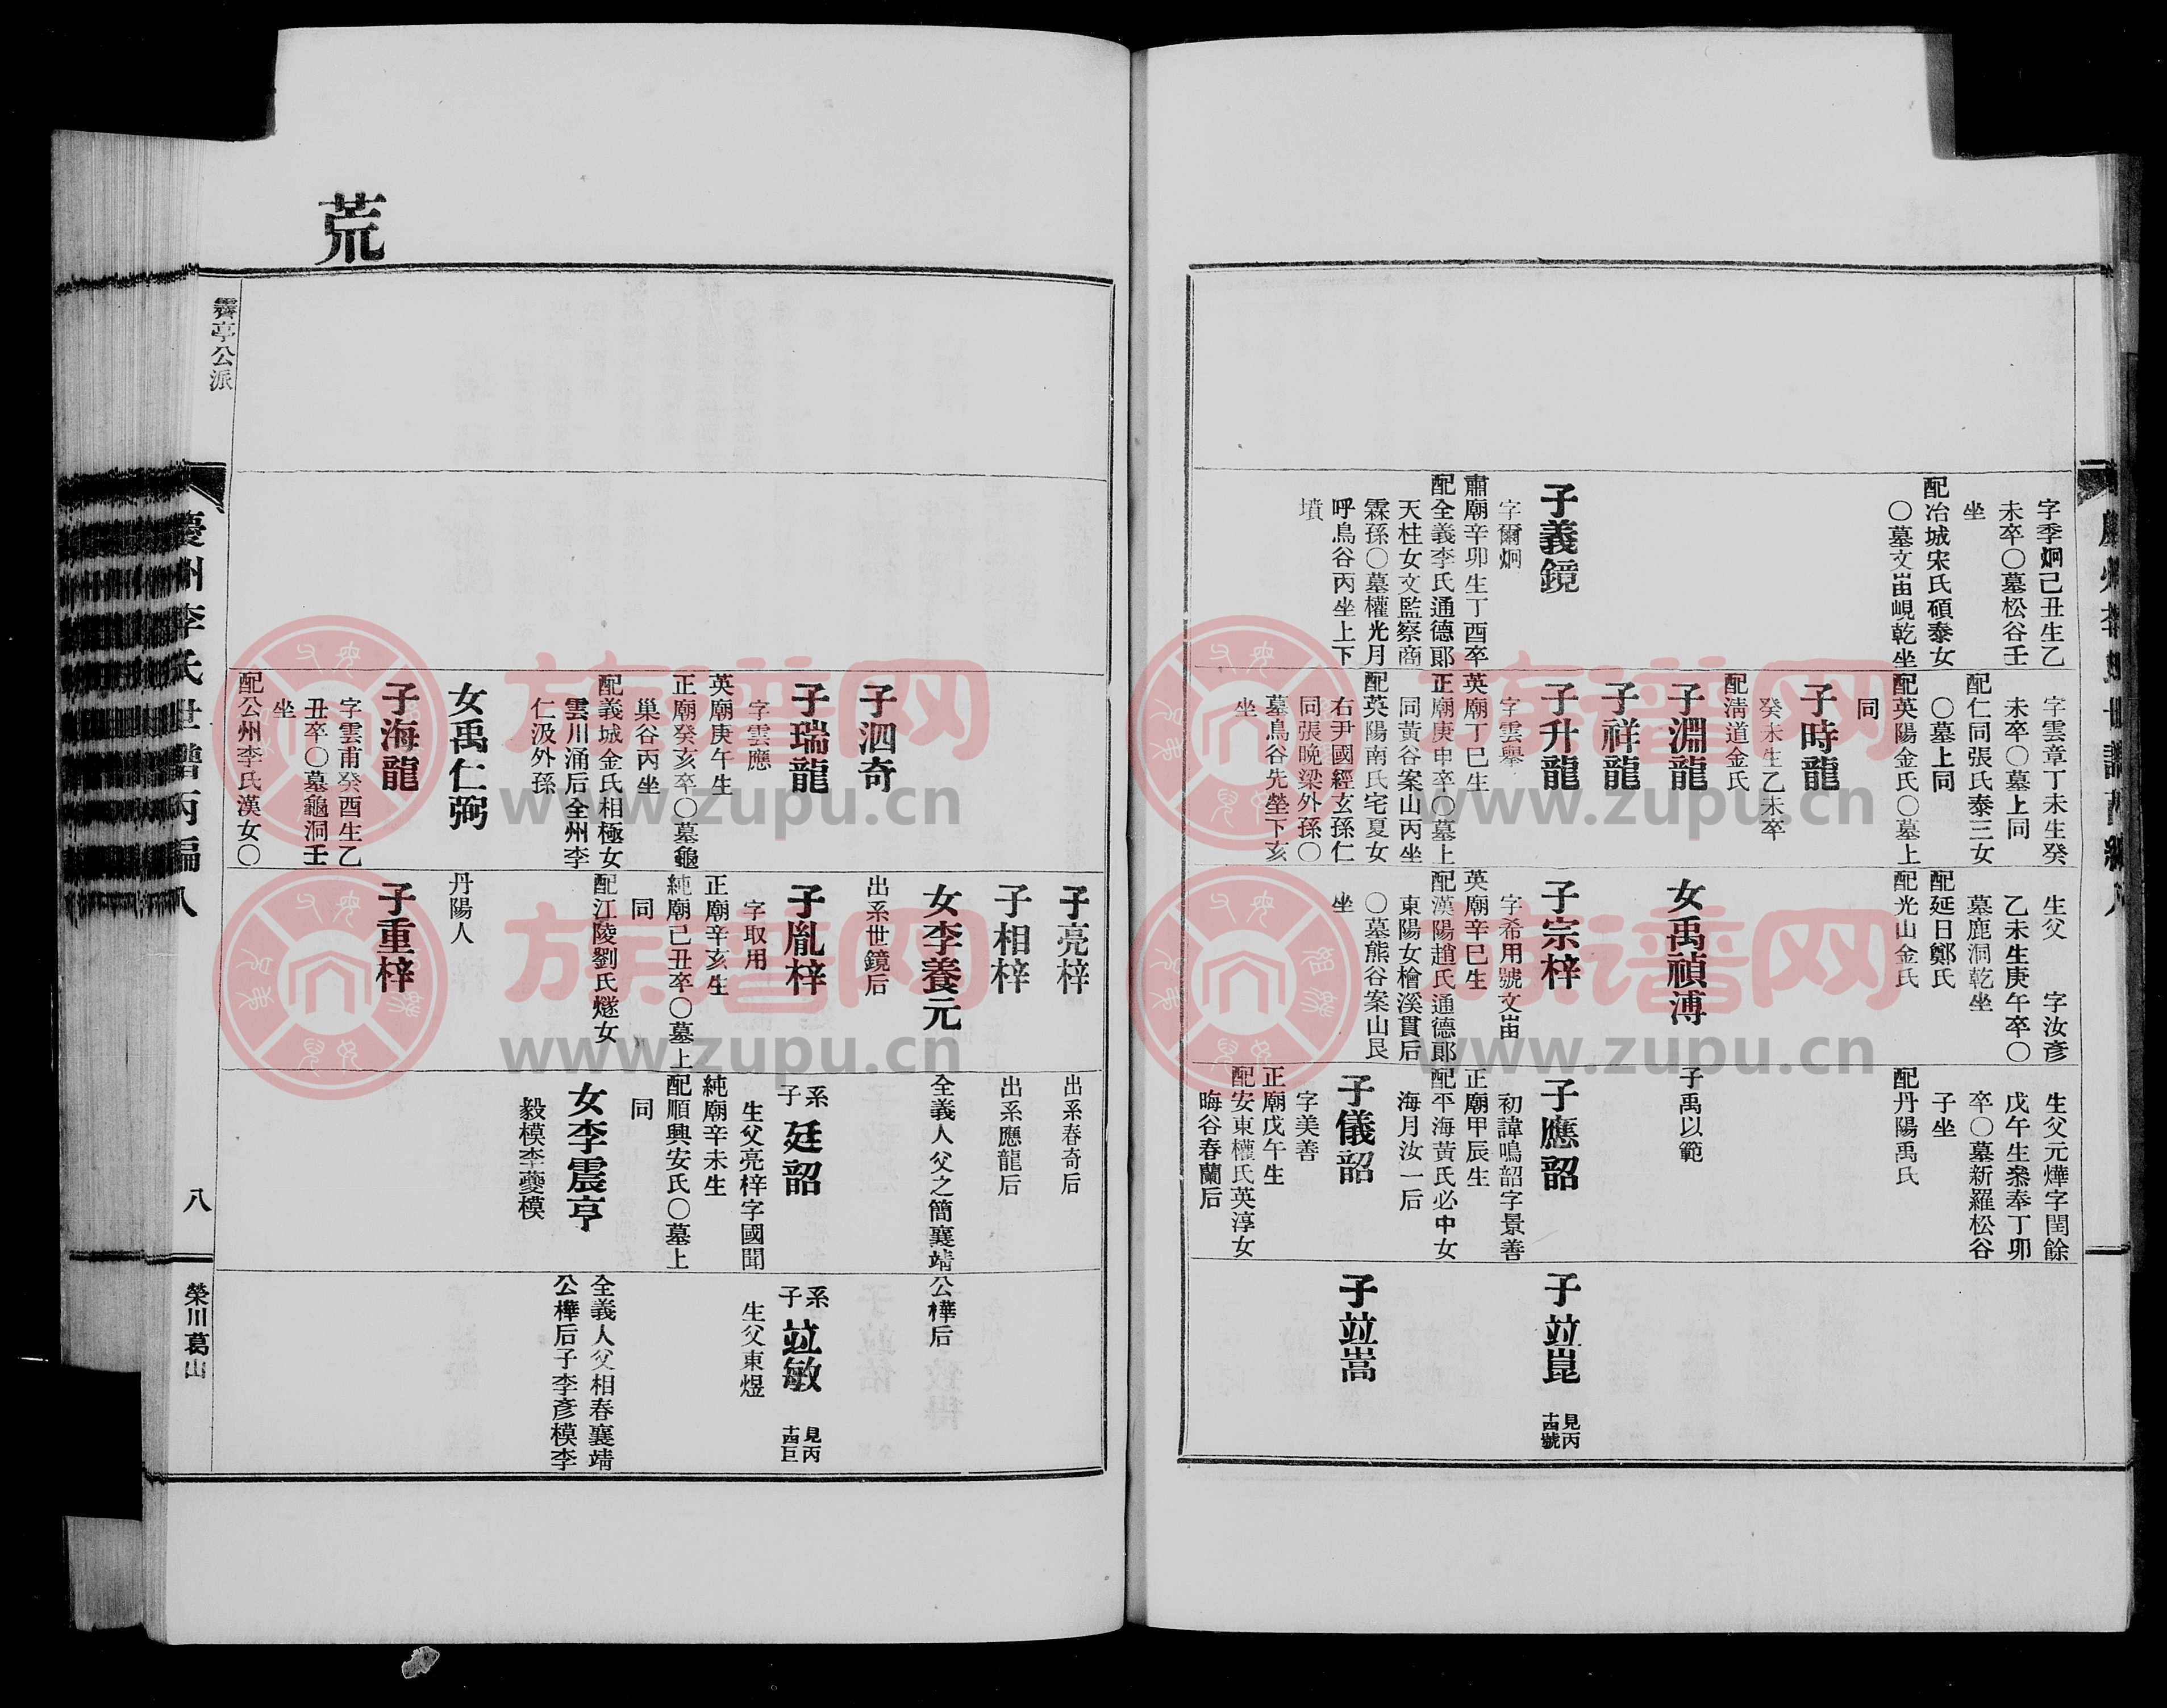 字季炯己丑生乙
未卒〇墓松谷壬
坐
配冶城宋氏碩泰女
〇墓文峀峴乾坐
子義鏡
字爾炯
肅廟辛卯生丁酉卒
配全義李氏通德郞
天柱女文監察商
霖孫〇墓權光月
呼鳥谷丙坐上下
墳
字雲章丁未生癸
未卒〇墓上同
配仁同張氏泰三女
〇墓上同
配英陽金氏〇墓上
同
子時龍
癸未生乙未卒
配淸道金氏
子淵龍
子祥龍
子升龍
字雲擧
英廟丁巳生
正廟庚申卒〇墓上
同黃谷案山丙坐
配英陽南氏宅夏女
右尹國經玄孫仁
同張晩梁外孫〇
墓鳥谷先塋下亥
坐
生父 字汝彥
乙未生庚午卒〇
墓鹿洞乾坐
配延日鄭氏
配光山金氏
女禹禎溥
子宗梓
字希用號文峀
英廟辛巳生
配漢陽趙氏通德郞
東陽女檜溪貫后
〇墓熊谷案山艮
坐
生父元燁字閏餘
戊午生叅奉丁卯
卒〇墓新羅松谷
子坐
配丹陽禹氏
子禹以範
子應韶
初諱鳴韶字景善
正廟甲辰生
配平海黃氏必中女
海月汝一后
子儀韶
字美善
正廟戊午生
配安東權氏英淳女
晦谷春蘭后
子竝崑 見丙
十四號
子竝嵩
荒
霽亭公派
慶州李氏世譜丙編
八
榮川葛山
子泗奇
子瑞龍
字雲應
英廟庚午生
正廟癸亥卒〇墓龜
巢谷丙坐
配義城金氏相極女
雲川涌后全州李
仁汲外孫
女禹仁弼
子海龍
字雲甫癸酉生乙
丑卒〇墓龜洞壬
坐
配公州李氏漢女〇
子亮梓
子相梓
女李養元
出系世鏡后
子胤梓
字取用
正廟辛亥生
純廟己丑卒〇墓上
同
配江陵劉氏燧女
丹陽人
子重梓
出系春奇后
出系應龍后
全義人父之簡襄靖
公樺后
系子廷韶
生父亮梓字國聞
純廟辛未生
配順興安氏〇墓上
同
女李震亨
毅模李夔模
系子竝敏 見丙
十四巨
生父東煜
全義人父相春襄靖
公樺后子李彥模李
族谱网
www.zupu.cn
族谱网
www.zupu.cn
族谱网
www.zupu.cn
族谱网
www.zupu.cn